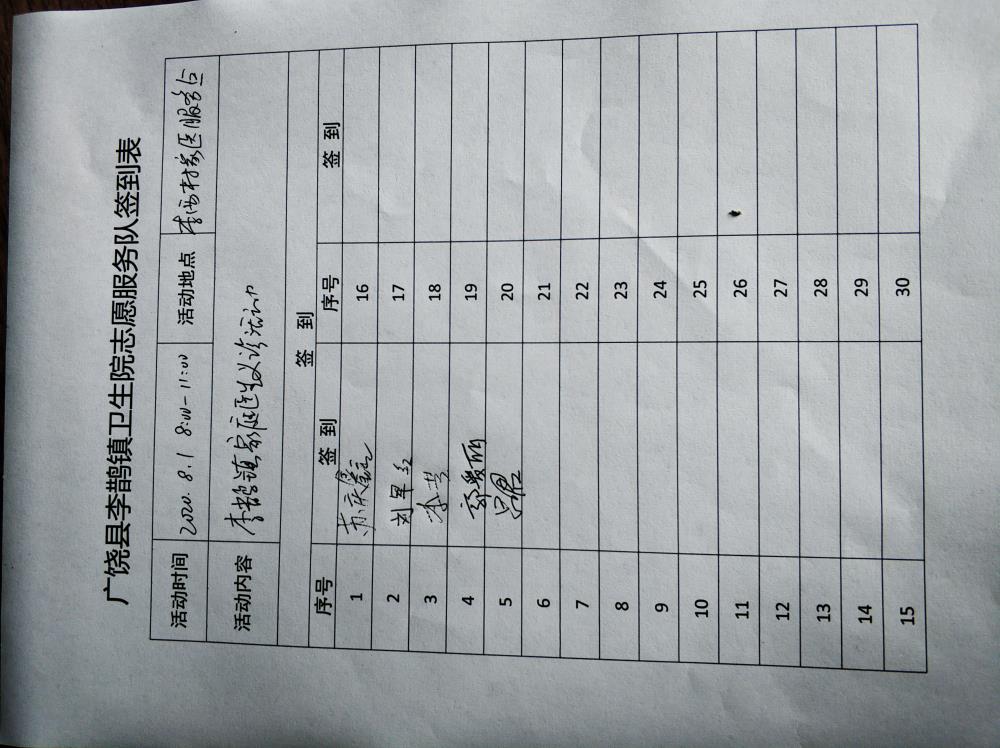 广饶县李鹊镇卫生院志愿服务队签到表
活动时间 2020.8.1 8:00-11:00 活动地点 李西村家医服务点
活动内容 李鹊镇家庭医生义诊活动
签 到
序号 签 到 序号 签 到
1 16
2 刘军 17
3 李芸 18
4 郭爱丽 19
5 吕君 20
6 21
7 22
8 23
9 24
10 25
11 26
12 27
13 28
14 29
15 30